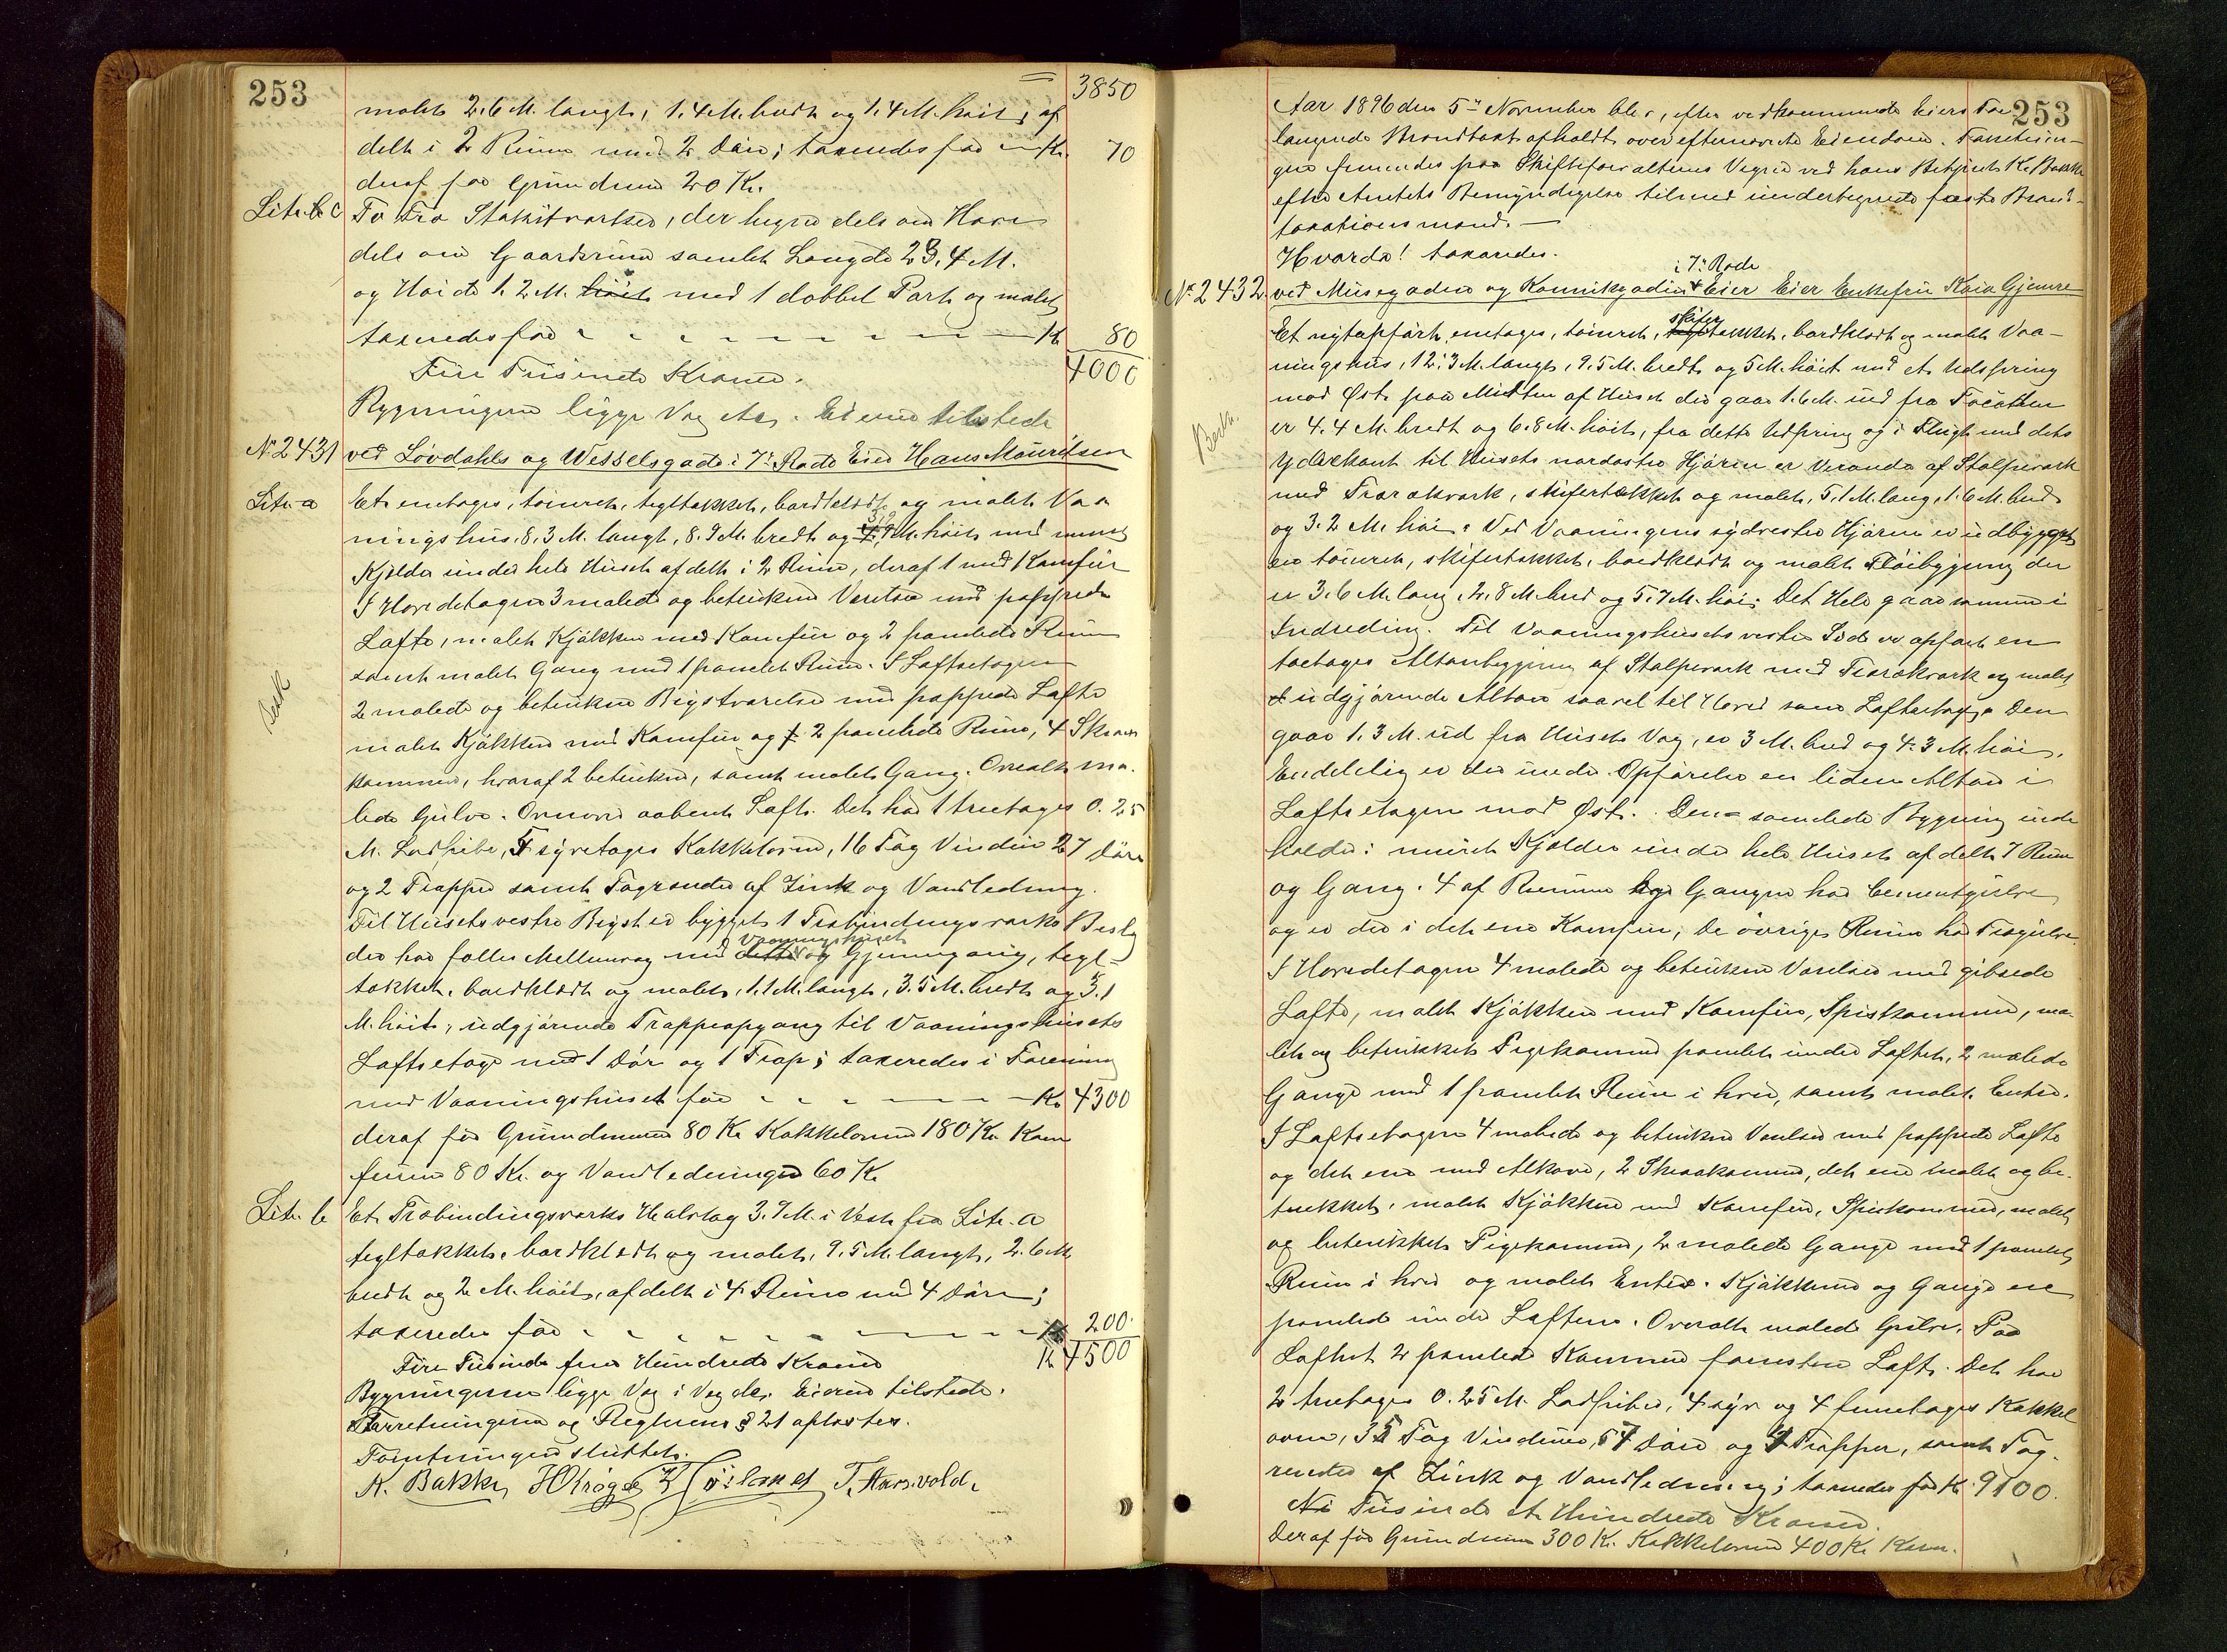 253
= 3850
malet 2.6 M. langt, 1.4 M. bredt og 1.4 M. höit, af
delt i 2 Rum med 2 Döre; taxeredes for — Kr. 70
deraf for Grundmur 20 Kr.
Litr. c To Træ Stakitværker, der hegne dels om Have
dels om Gaardsrum samlet Længde 23.4 M.
og Höide 1.2 M. höit med 1 dobbel Port og malet
taxeredes for - - - - - - - - Kr 80
4000
Fire Tusinde Kroner.
Bygningerne ligge Væg etc. Eieren tilstede
No 2431 ved Lövdahls og Wesselsgade i 7de Rode Eier Hans Mauritsen
Litr. a Et enetages, tömret, tegltækket, bordklædt og malet Vaa
ningshus, 8.3 M. langt, 8.9 M. bredt og M. höit med muret
Kjelder under hele Huset afdelt i 2 Rum, deraf 1 med Komfur
I Hovedetagen 3 malede og betrukne Værelser med pappede
Lofte, malet Kjökken med Komfur og 2 panelede Rum
samt malet Gang med 1 panelet Rum. I Loftsetagen
2 malede og betrukne Kvistværelser med pappede Lofte
malet Kjökken med Komfur og 2 panelede Rum, 4 Skraa
kammer, hvoraf 2 betrukne, samt malet Gang. Overalt ma-
lede Gulve. Ovenover aabent Loft. Det har 1 treetages 0.25
M. Lodpibe, 5 syvetages Kakkelovne, 16 Fag Vinduer 27 Döre
og 2 Trapper samt Tagrender af Zink og Vandledning.
Til Husets vestre Kvist er bygget 1 Træbindingsværks Bislag
der har fælles Mellemvæg med dette Vaaningshuset og Gjennemgang, tegl-
tækket, bordklædt og malet, 1.1 M. langt, 3.5 M. bredt og 5.1
M. höit, udgjörende Trappeopgang til Vaaningshusets
Loftsetage med 1 Dör og 1 Trap; taxeredes i Forening
med Vaaningshuset for - - - - - - Kr 4300
deraf for Grundmuren 80 Kr Kakkelovne 180 Kr Kom
furene 80 Kr. og Vandledningen 60 Kr
Litr. b Et Træbindingsværks Halvtag 3.7 M. i Vest fra Litr. a
tegltækket, bordklædt og malet, 9.5 M. langt, 2.6 M.
bredt og 2 M. höit, afdelt i 4 Rum med 4 Döre;
taxeredes for - - - - - - - - Kr 200.
Fire Tusinde fem Hundrede Kroner Kr 4500
Bygningerne ligge Væg i Væg etc. Eieren tilstede.
Forretningerne og Reglerne § 21 oplæstes.
Forretningen sluttet.
K. Bakke, T. Aarsvold.
Besk
253
Aar 1896 den 5te November blev, efter vedkommende Eiers For
langende Brandtaxt afholdt over efternævnte Eiendom. Forretnin-
gen fremmedes paa Skiftforvalterens Vegne ved hans Betjent K. Bakke
efter Amtets Bemyndigelse tilmed undertegnede faste Brand-
taxationsmænd. —
Hvorda! taxeredes.
No 2432. ved Musegaden og Kannikgaden i 7de Rode Eier Eier Enkefru Kaia Gjemre
Et nyt opfört enetages, tömret, skifertækket, bordklædt og malet Vaa-
ningshus, 12.3 M. langt, 9.5 M. bredt og 5 M. höit med et Udspring
mod Öst paa Midten af Huset der gaar 1.6 M. ud fra Facaden
er 4.4 M. bredt og 6.8 M. höit, fra dette Udspring og i Flugt med dets
Yderkant til Husets nordöstre Hjörne er Veranda af Stolpeværk
med Trærækværk, skifertækket og malet, 5.1 M. lang, 1.6 M. bred
og 3.2 M. höi. Ved Vaaningens sydvestre Hjörne er udbygget
en tömret, skifertækket, bordklædt og malet Flöibygning der
er 3.6 M. lang, 2.8 M. bred og 5.7 M. höi. Det Hele gaar sammen i
Indreding. Til Vaaningshusets vestre Side er opfört en
toetages Altanbygning af Stolpeværk med Trærækværk og malet
udgjörende Altan saavel til Hoved som Loftsetage. Den
gaar 1.3 M. ud fra Husets Væg, er 3 M. bred og 4.3 M. höi.
Endelig er der under Opförelse en liden Altan i
Loftsetagen mod Öst. Den samlede Bygning inde
holder: muret Kjelder under hele Huset afdelt 7 Rum
og Gang. 4 af Rummene og Gangen har Cementgulve
og er der i det ene Komfur; de övrige Rum har Trægulve.
I Hovedetagen 4 malede og betrukne Værelser med gibsede
Lofte, malet Kjökken med Komfur, Spiskammer, ma-
let og betrukket Pigekammer panelet under Loftet, 2 malede
Gange med 1 panelet Rum i hver, samt malet Entre.
I Loftsetagen 4 malede og betrukne Værelser med pappede Lofte
og det ene med Alkove, 2 Skraakammer, det ene malet og be-
trukket, malet Kjökken med Komfur, Spiskammer, malet
og betrukket Pigekammer, 2 malede Gange med 1 panelet
Rum i hver og malet Entre. Kjökkener og Gange ere
panelede under Loftene. Overalt malede Gulve. Paa
Loftet 2 panelede Kammer forresten Loft. Det har
2 treetages 0.25 M. Lodpiber, 4 syv og 4 femetages Kakkel
ovne, 35 Fag Vinduer, 57 Döre og 4 Trapper, samt Tag-
render af Zink og Vandledning; taxeredes for Kr 9100.
Ni Tusinde et Hundrede Kroner.
Deraf for Grundmuren 300 Kr. Kakkelovne 400 Kr Kom-
Besk.